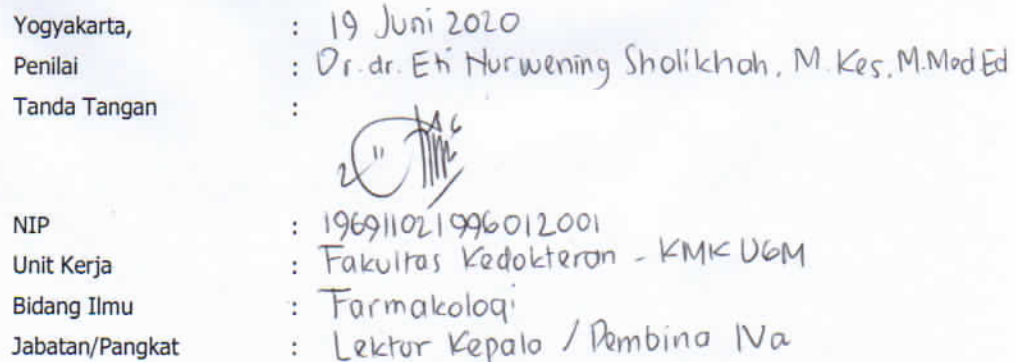 Yogyakarta, : 19 Juni 2020
Penilai : Dr. dr. Eti Nurwening Sholikhah, M.Kes, M.Med.Ed
Tanda Tangan :
NIP : 196911021996012001
Unit Kerja : Fakultas Kedokteran - KMK UGM
Bidang Ilmu : Farmakologi
Jabatan/Pangkat : Lektor Kepala / Pembina IVa